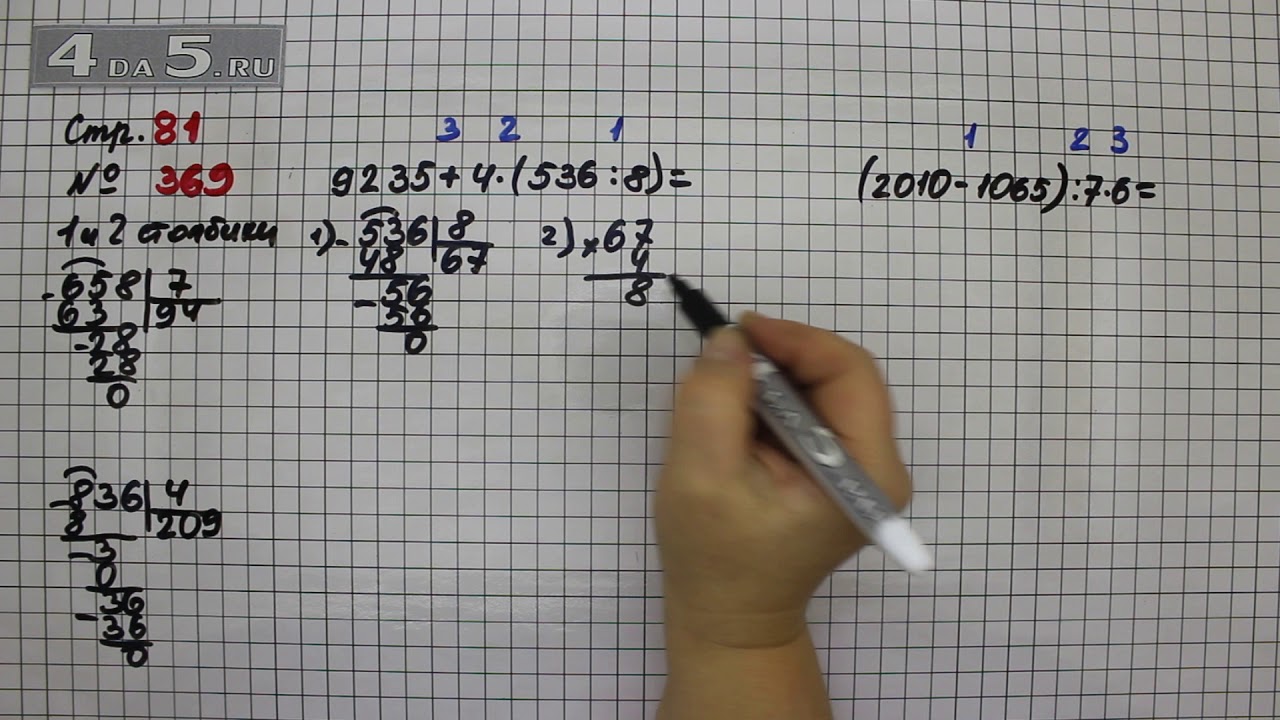 4DA5.RU
Стр. 81
№ 369
1 и 2 столбики
658 | 7
63 | 94
-28
28
0
-836 | 4
8 | 209
-3
0
36
-36
0
3 2 1
9235+4·(536:8)=
1) -536 | 8
48 | 67
-56
56
0
2) ×67
4
8
1 2 3
(2010-1065):7·6=